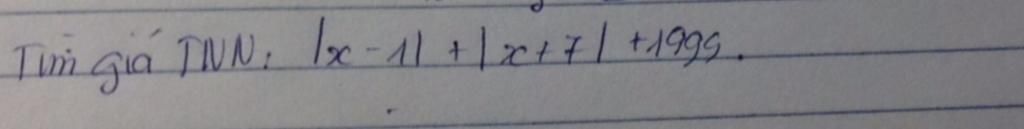 Tìm giá TNN: |x - 1| + |x + 7| + 1999.